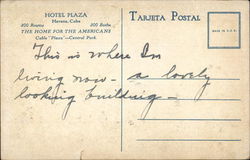 HOTEL PLAZA
Havana, Cuba
400 Rooms 300 Baths
THE HOME FOR THE AMERICANS
Cable "Plaza"—Central Park
TARJETA POSTAL
This is where I'm
living now - a lovely
looking building -